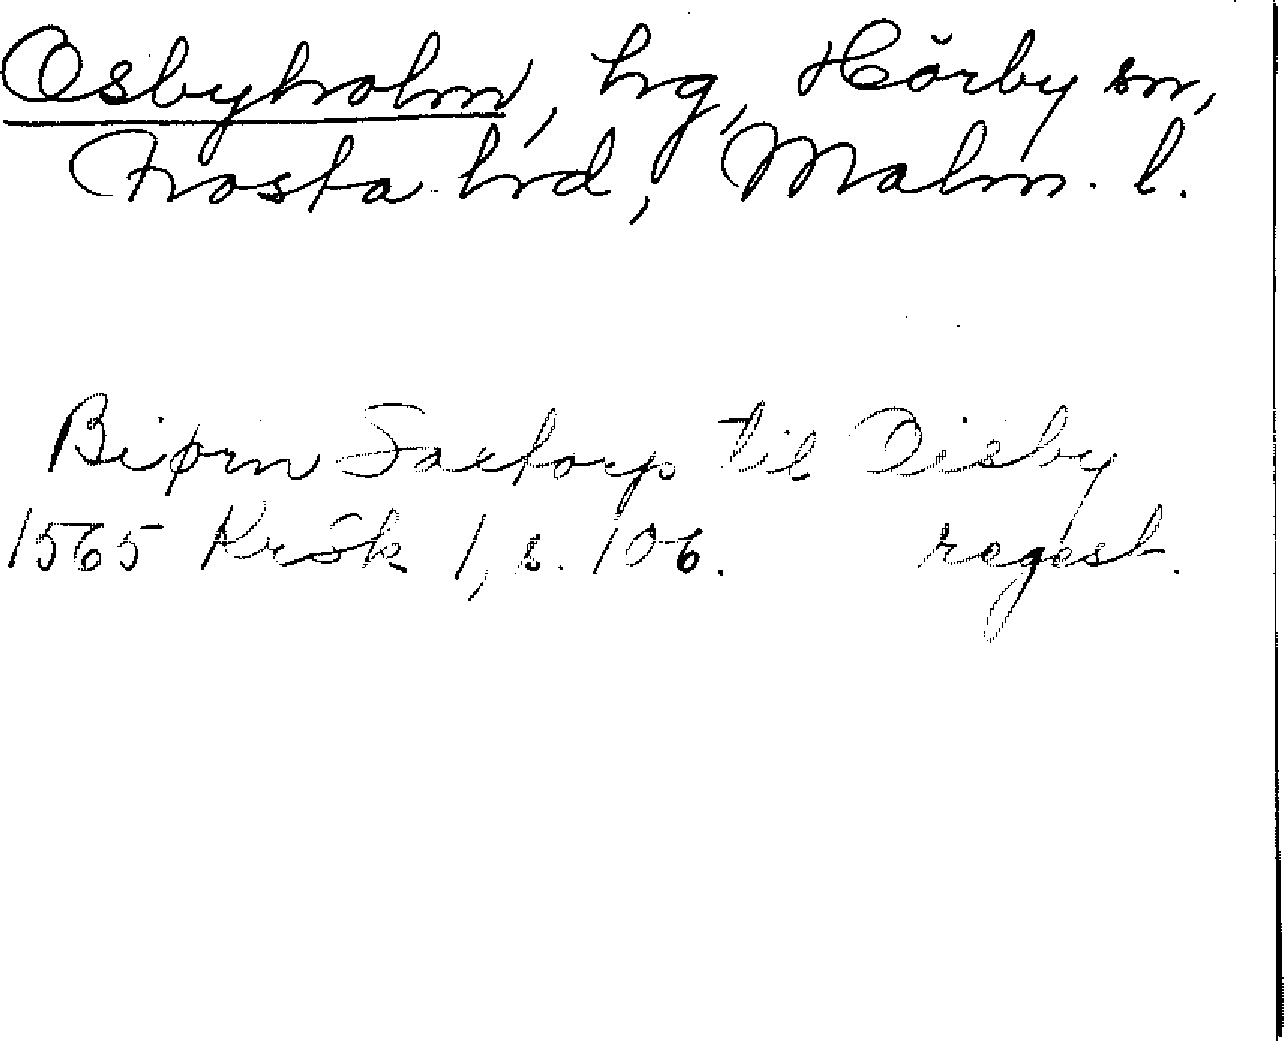 Osbyholm, hg, Hörby sn,
Frosta hrd, Malm. l.
Biørn Saxtorp til Oisby
1565 KrSk 1, s. 106. regest.